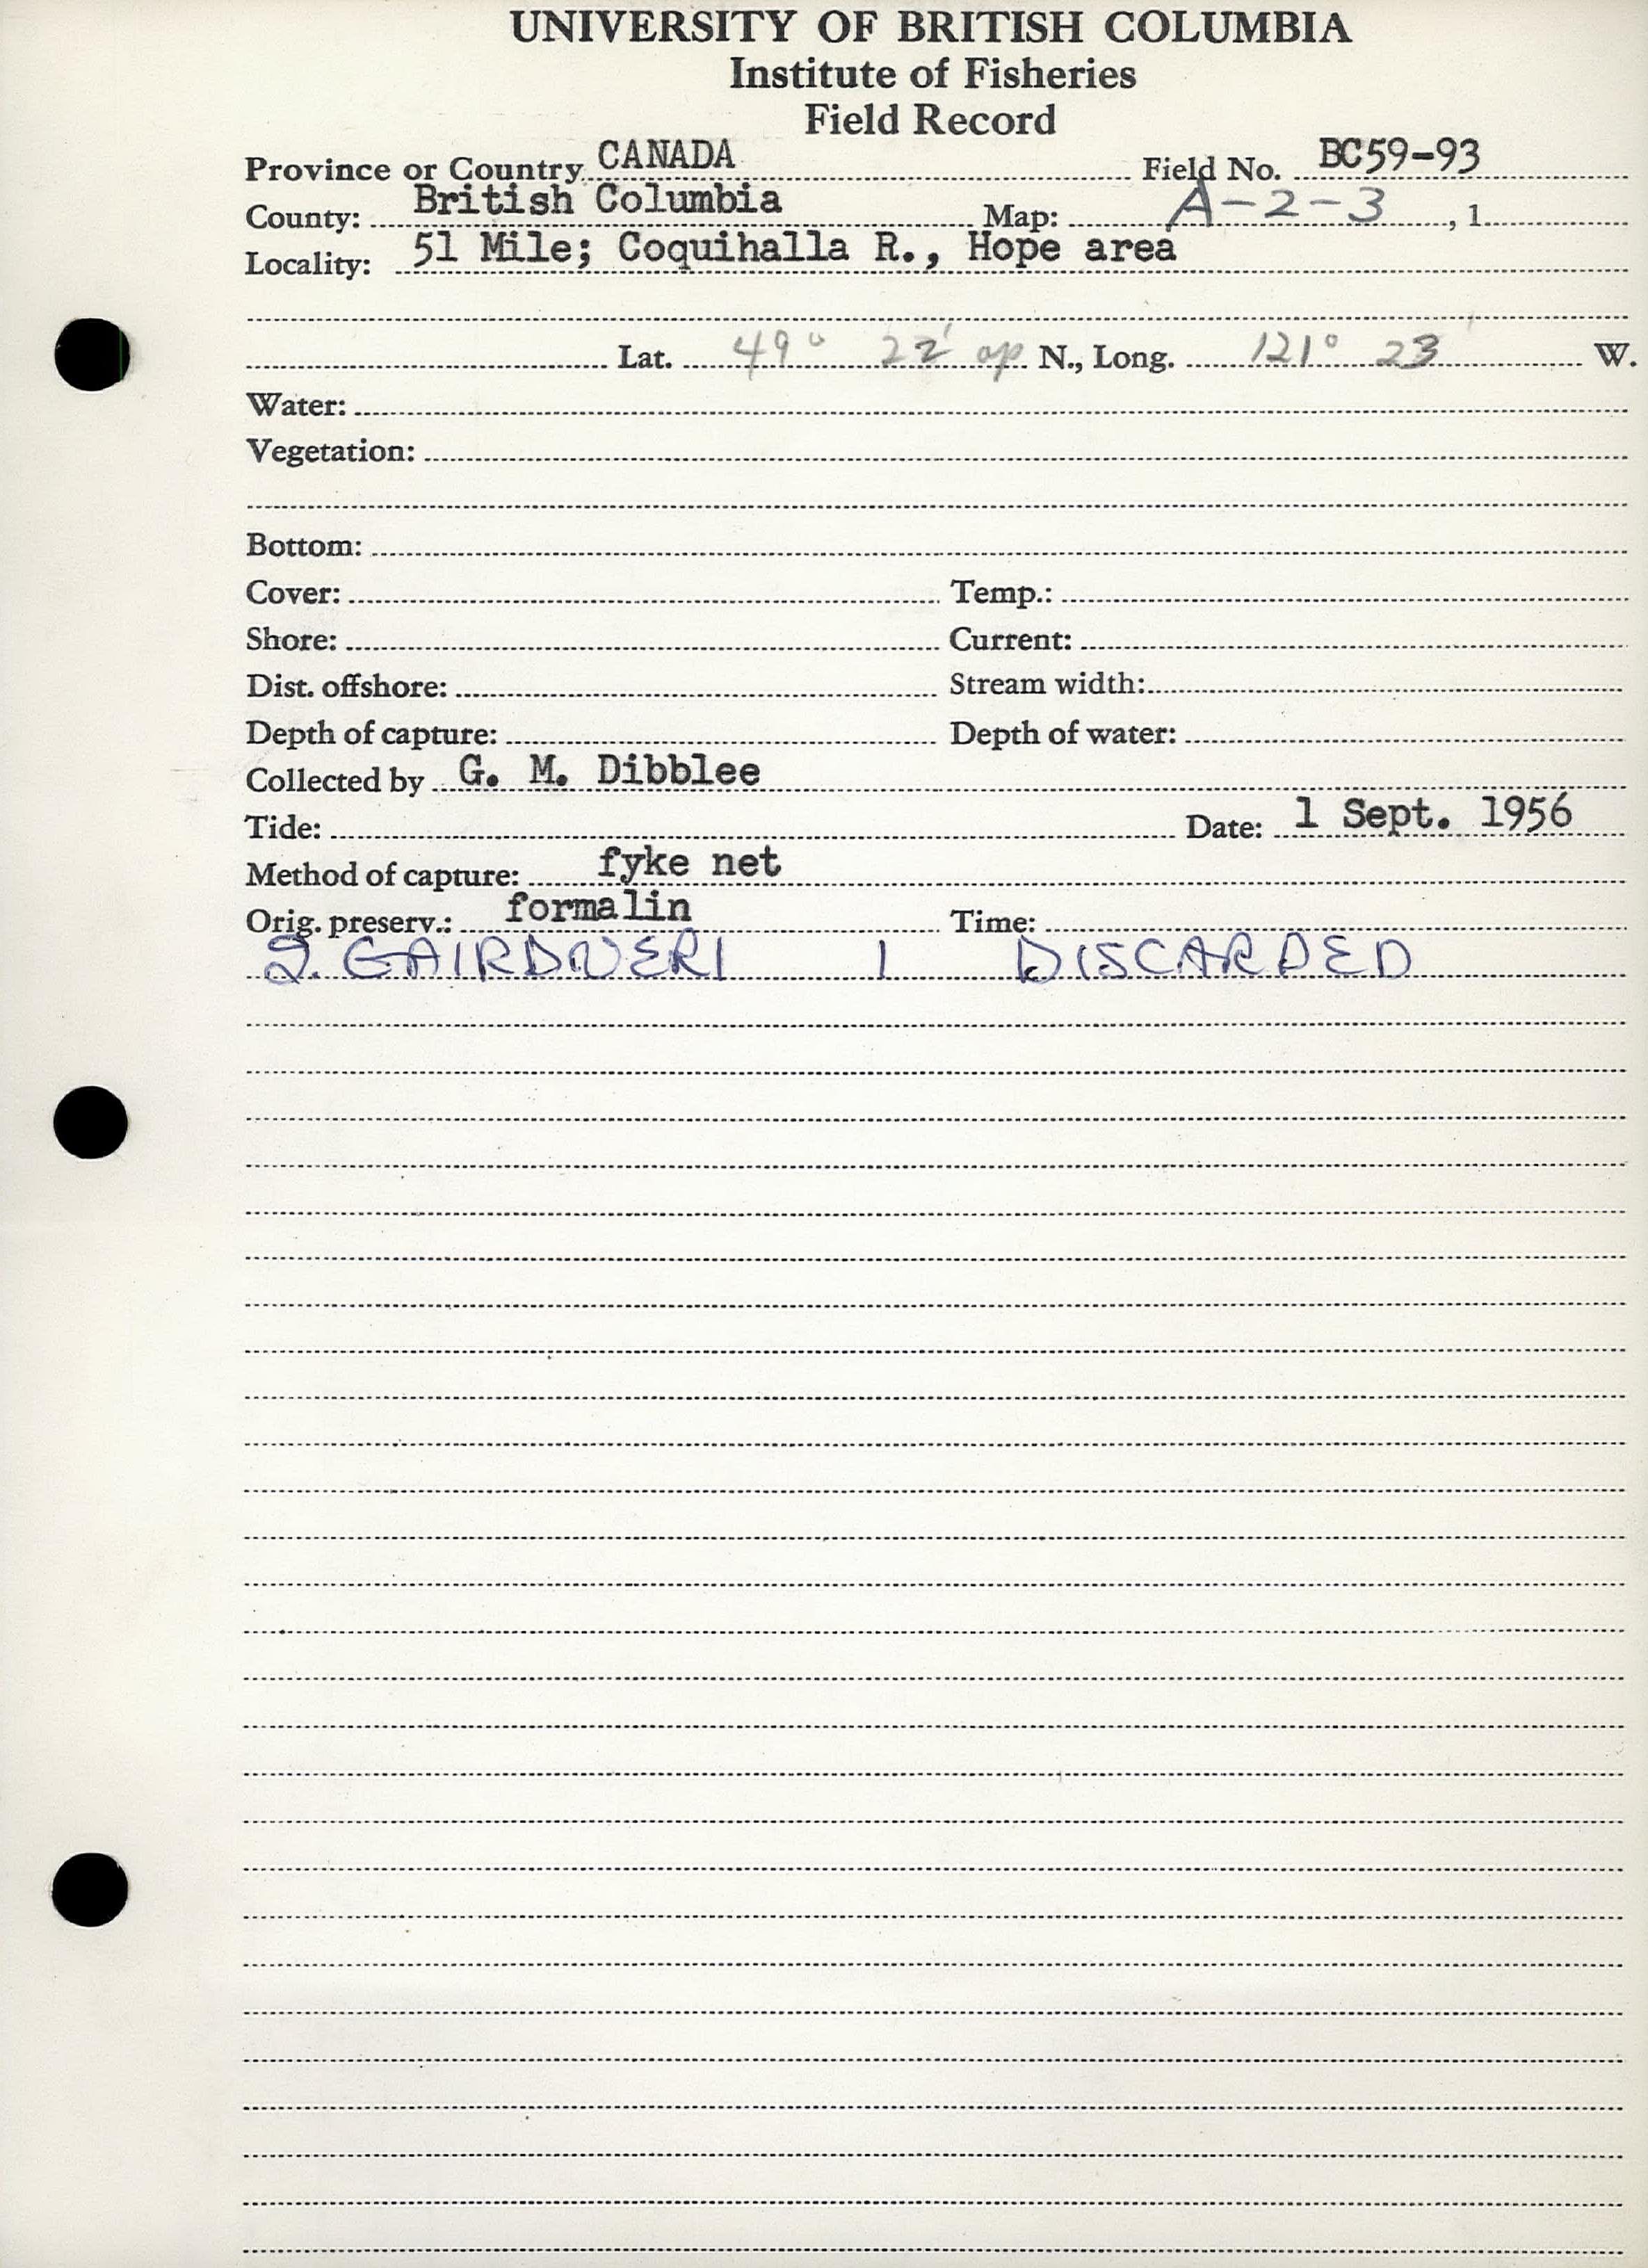 UNIVERSITY OF BRITISH COLUMBIA
Institute of Fisheries
Field Record
Province or Country CANADA Field No. BC59-93
County: British Columbia Map: A-2-3, 1
Locality: 51 Mile; Coquihalla R., Hope area
Lat. 49° 22' ap N., Long. 121° 23' W.
Water:
Vegetation:
Bottom:
Cover: Temp.:
Shore: Current:
Dist. offshore: Stream width:
Depth of capture: Depth of water:
Collected by G. M. Dibblee
Tide: Date: 1 Sept. 1956
Method of capture: fyke net
Orig. preserv.: formalin Time:
S. GAIRDNERI 1 DISCARDED